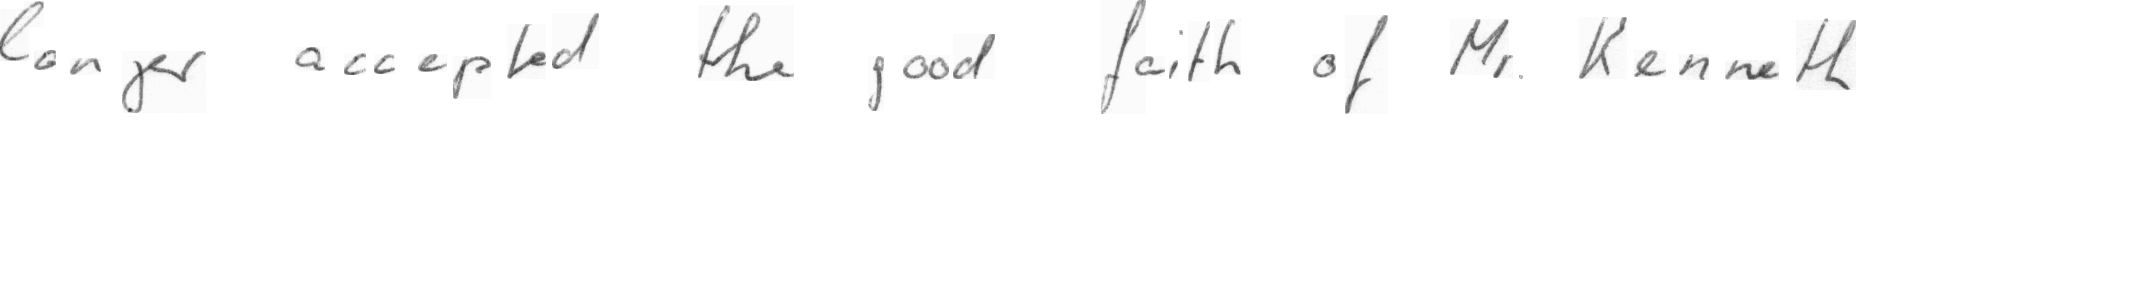 longer accepted the good faith of Mr. Kenneth